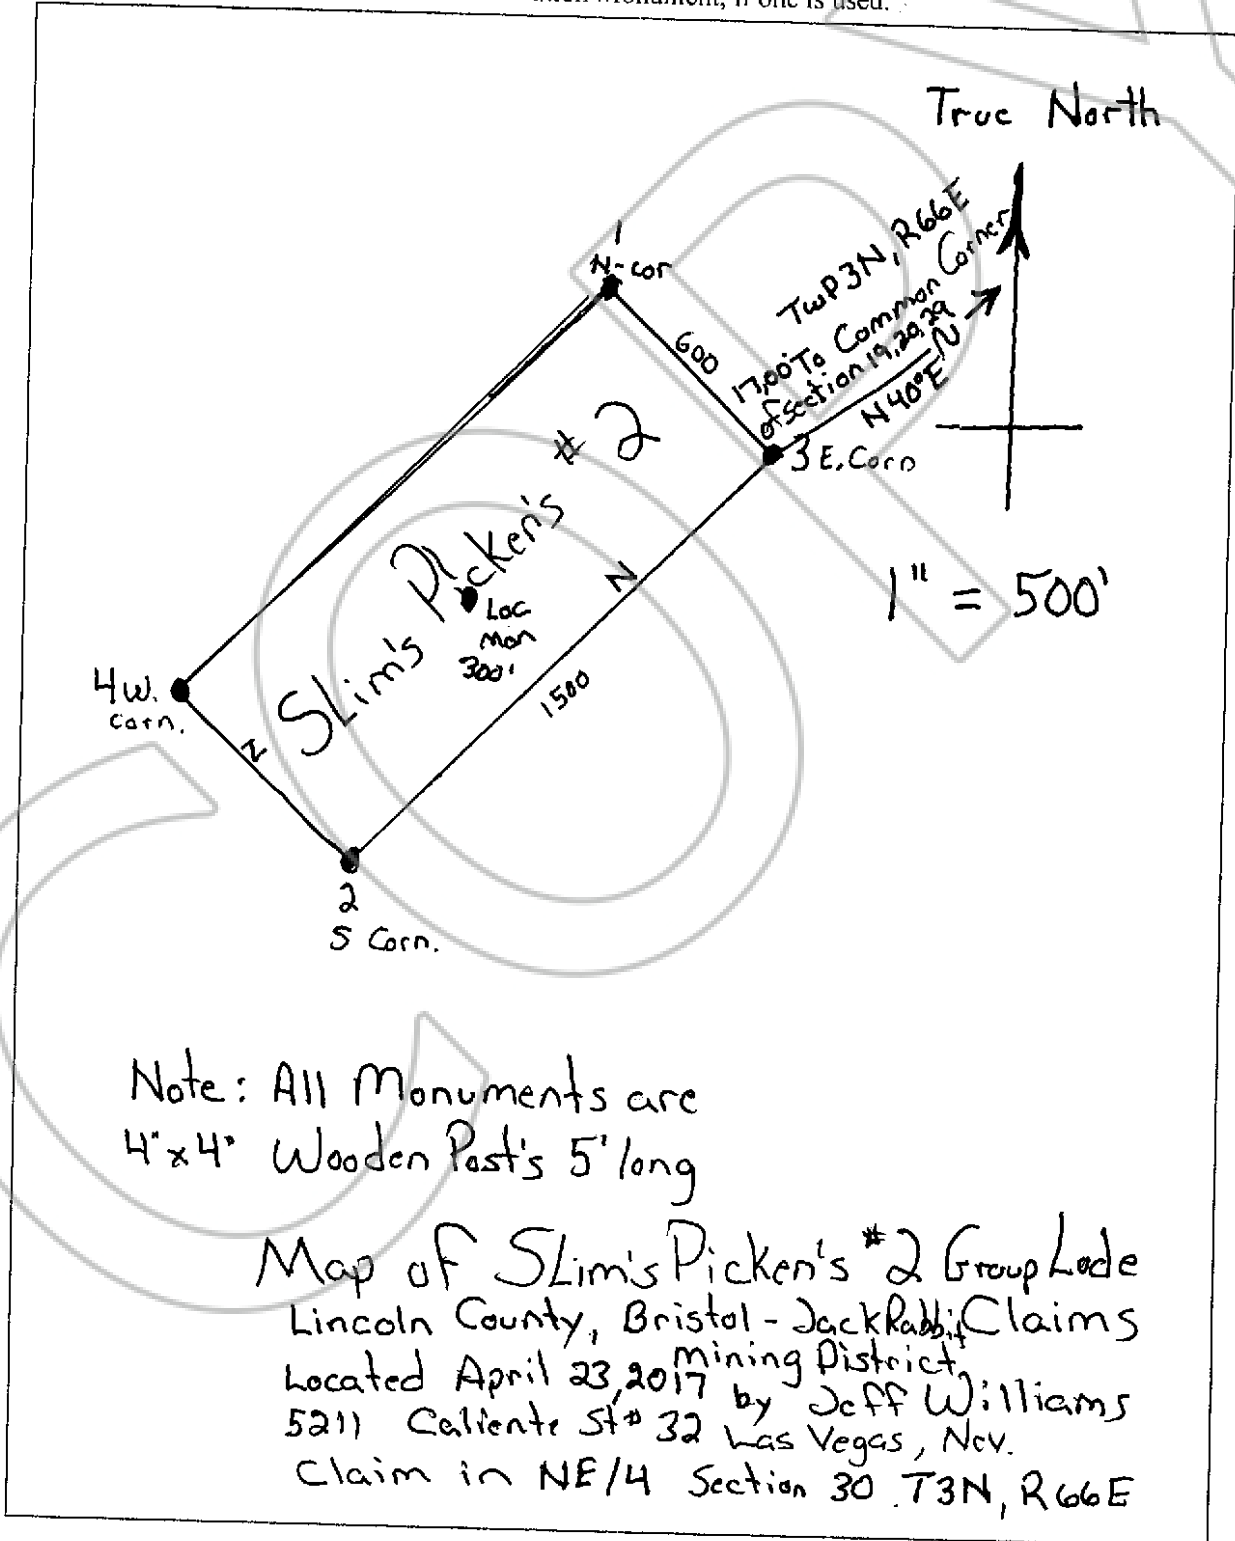 Monument, if one is used.
True North
1
N-cor
600
TwP 3N, R66E
17,00' To Common Corner
of section 19,20,29
N
N 40° E
3 E. Corn
# 2
SLim's Picken's
Loc
Mon
300'
N
1500
1" = 500'
4 W.
Corn.
N
2
S Corn.
Note: All Monuments are
4"x4" Wooden Post's 5' long
Map of SLim's Picken's #2 Group Lode
Lincoln County, Bristol - JackRabbit Claims
Mining District,
Located April 23, 2017 by Jeff Williams
5211 Caliente St # 32 Las Vegas, Nev.
Claim in NE/4 Section 30 T3N, R66E